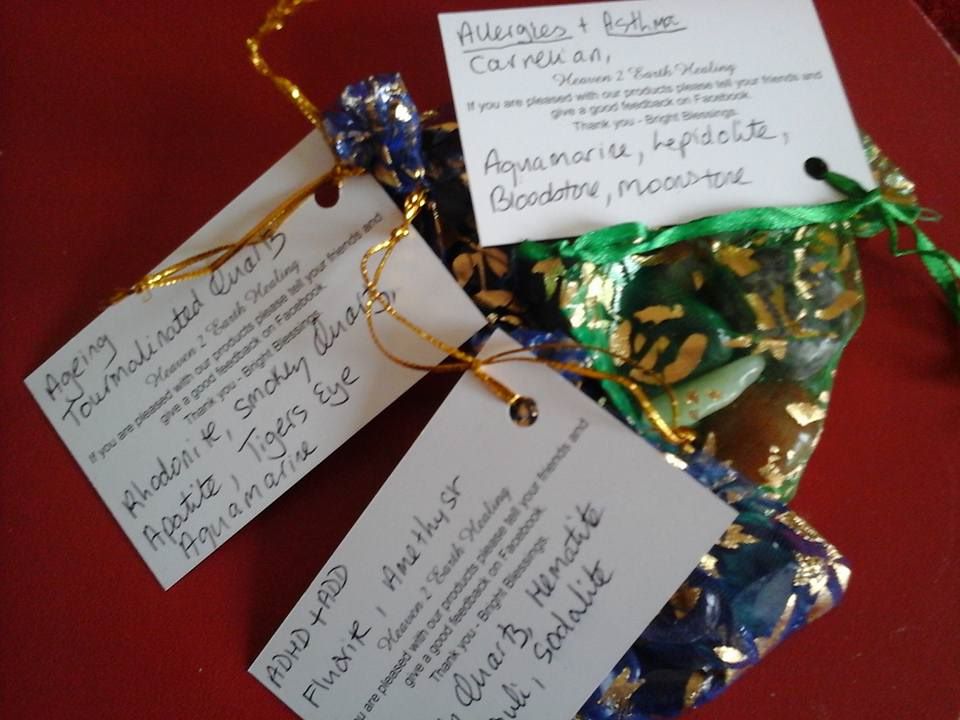 Allergies + Asthma
Carnelian,
Heaven 2 Earth Healing
If you are pleased with our products please tell your friends and
give a good feedback on Facebook.
Thank you - Bright Blessings.
Aquamarine, Lepidolite,
Bloodstone, Moonstone
Ageing
Tourmalinated Quartz
Heaven 2 Earth Healing
If you are pleased with our products please tell your friends and
give a good feedback on Facebook.
Thank you - Bright Blessings.
Rhodonite, Smokey Quartz,
Apatite, Tigers Eye
Aquamarine
ADHD + ADD
Fluorite, Amethyst
Heaven 2 Earth Healing
you are pleased with our products please tell your friends and
give a good feedback on Facebook.
Thank you - Bright Blessings.
Quartz, Hematite
Sodalite